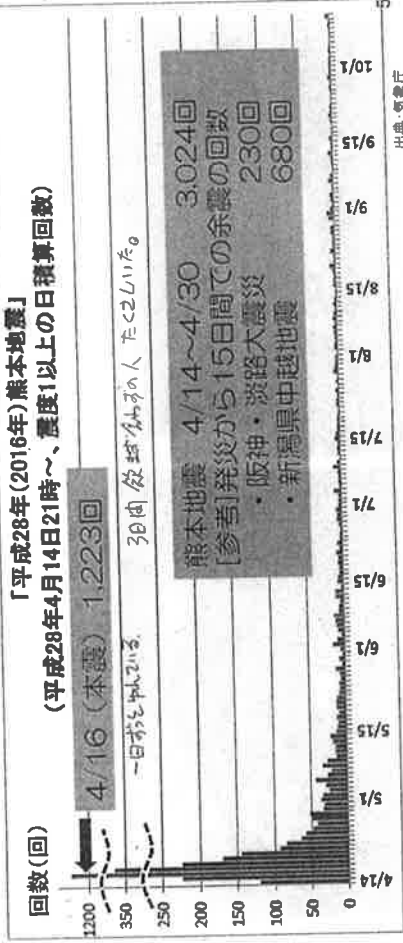 「平成28年(2016年)熊本地震」
(平成28年4月14日21時～、震度1以上の日積算回数)
回数(回)
4/16（本震）1,223回
一日ずっとゆれている。
3日間 飲まず食わずの人 たくさんいた。
熊本地震 4/14～4/30 3,024回
[参考]発災から15日間での余震の回数
・阪神・淡路大震災 230回
・新潟県中越地震 680回
1200
350
300
250
200
150
100
50
0
4/14 5/1 5/15 6/1 6/15 7/1 7/15 8/1 8/15 9/1 9/15 10/1
出典：気象庁
5